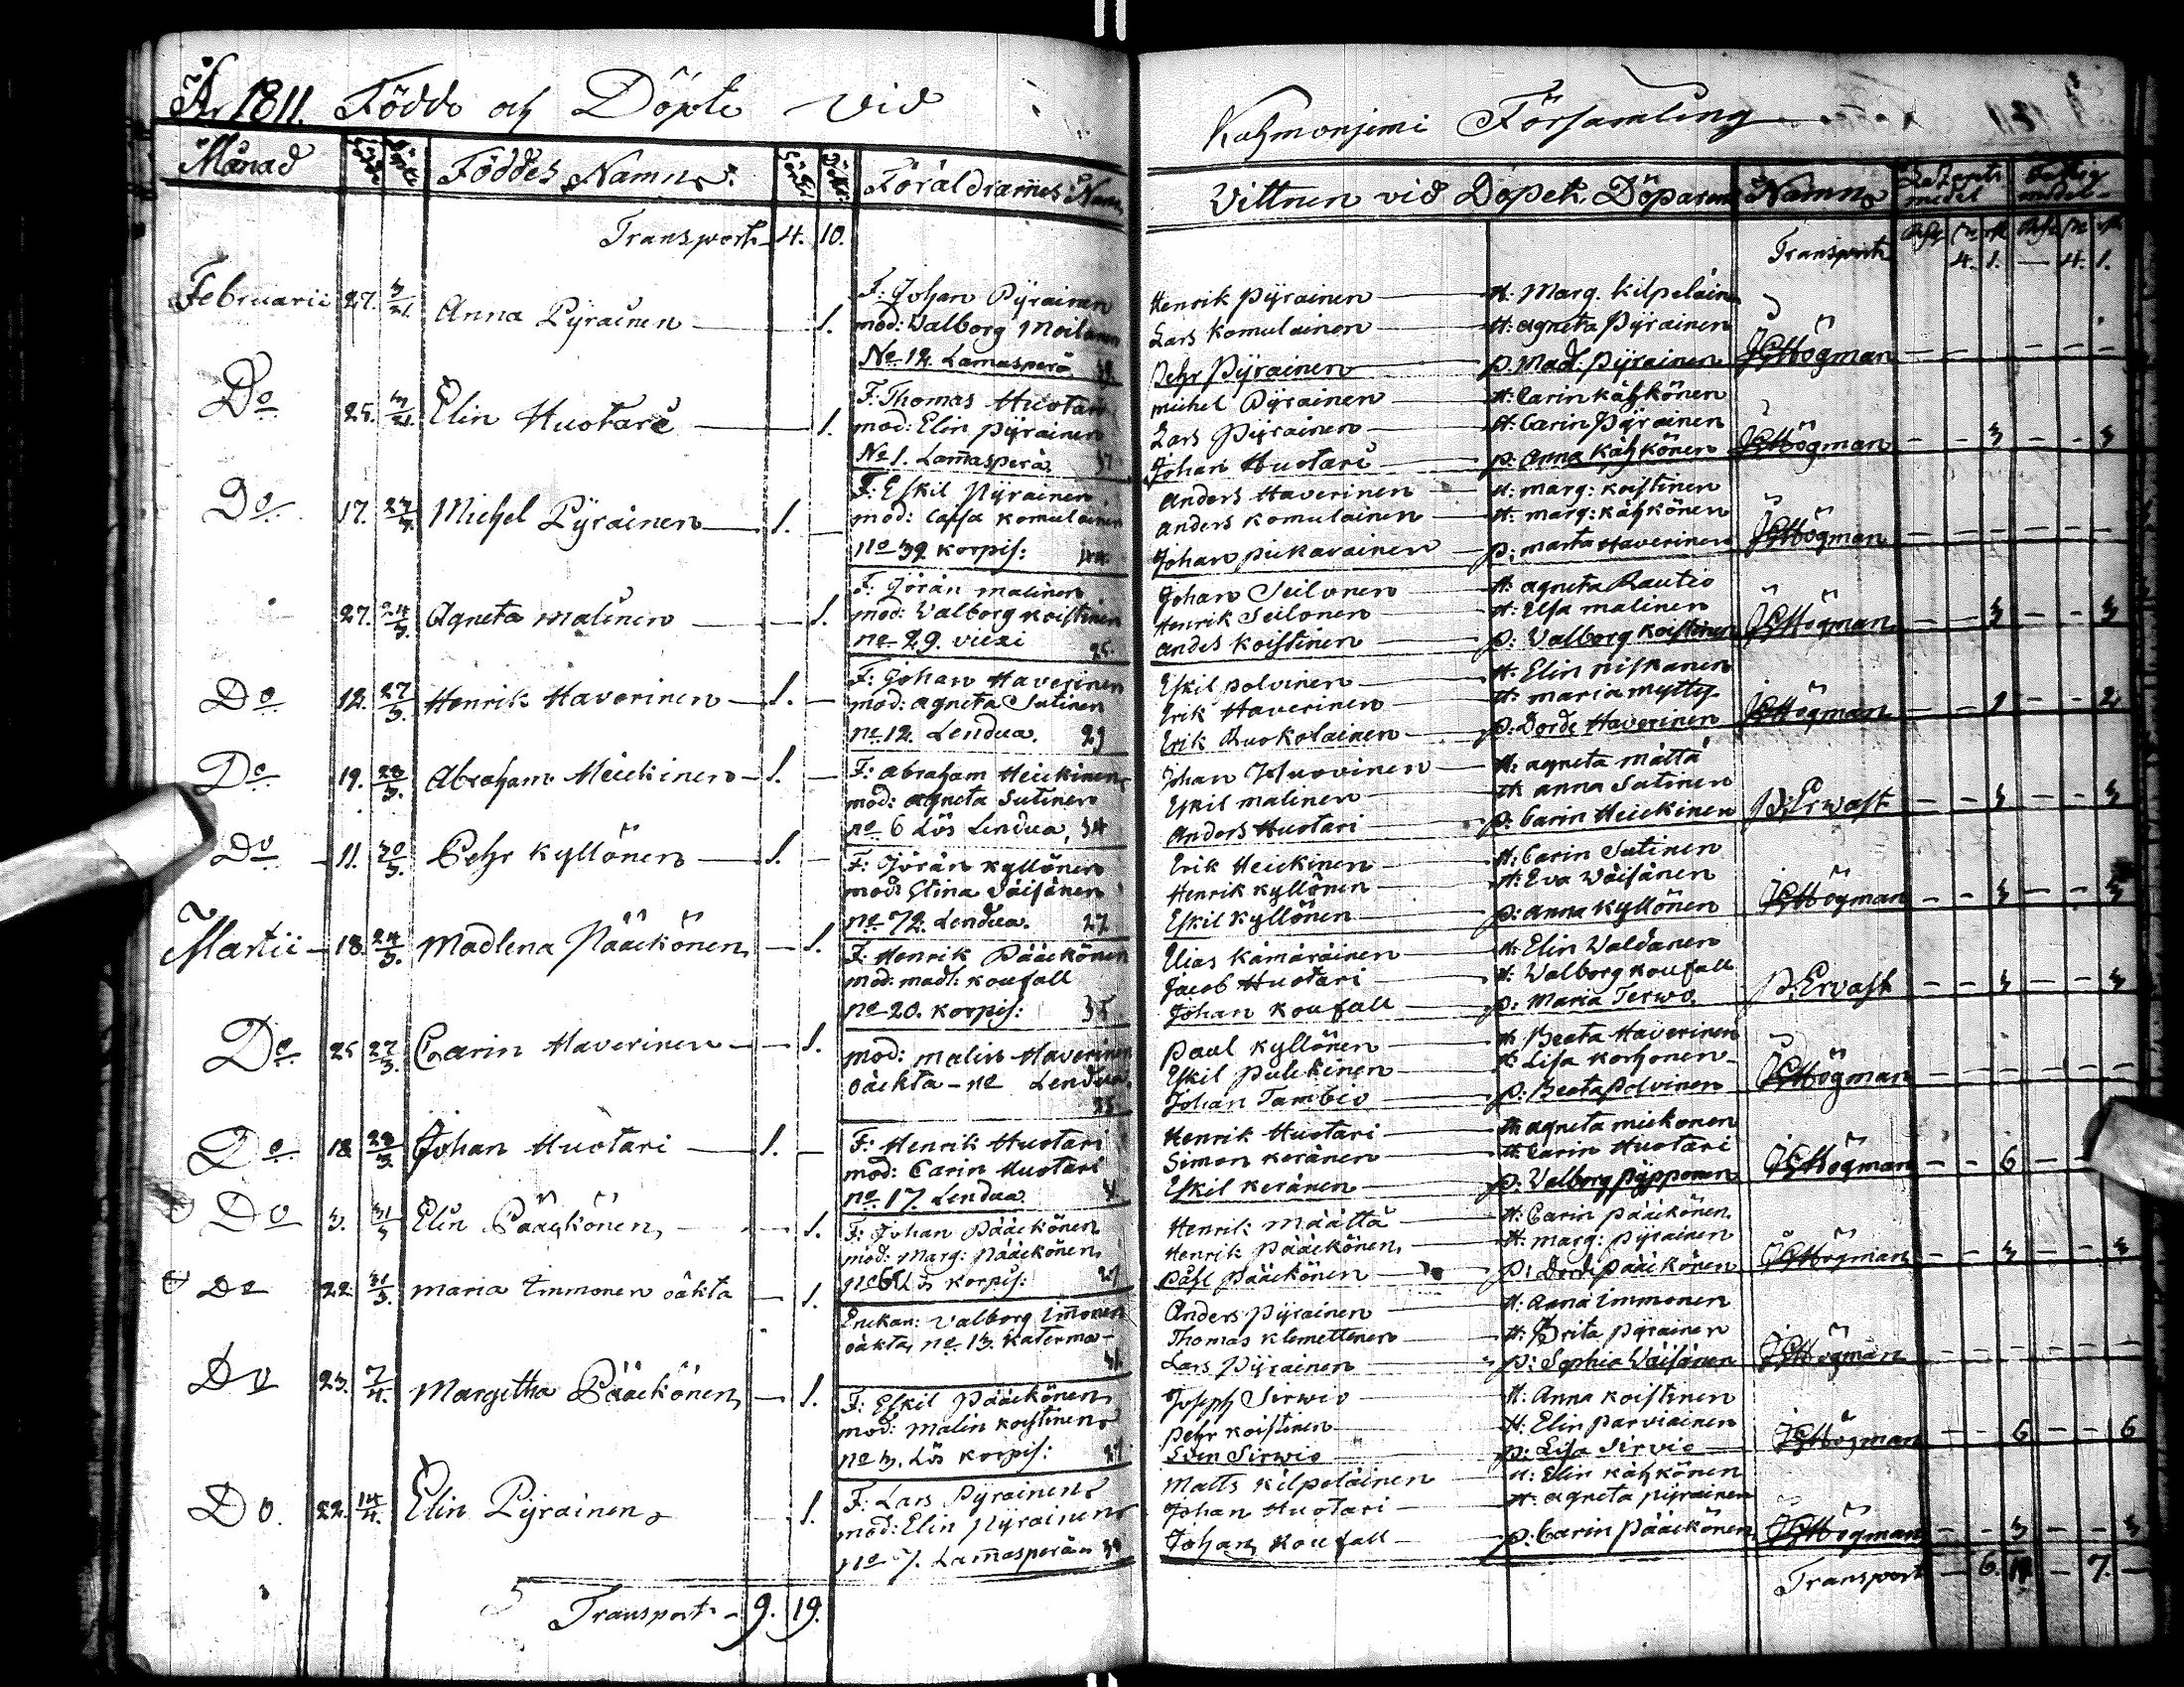 År 1811. Födde och Döpte vid
Månad Födde Döpte Föddes Namn. Söner Döttr: Föräldrarnes Namn
Transport 4. 10.
Februarii 27. 3/21. Anna Pyrainen 1.
F: Johan Pyrainen
mod: Walborg Moilanen
No 12. Lamasperä 39.
Do 25. 3/21. Elin Huotari 1.
F: Thomas Huotari
mod: Elin Pyrainen
No 1. Lam̄asperä 37
Do 17. 24/3. Michel Pyrainen 1.
F: Eskil Pyrainen
mod: Cassa Komulainen
No 32 Korpis:
27. 24/3. Agneta Malinen 1.
F: Göran Malinen
mod: Walborg Koistinen
no 29. Viexi 25
Do 12. 27/3. Henrik Haverinen 1.
F: Johan Haverinen
mod: Agneta Sutinen
no 12. Lendua. 29
Do 19. 28/3. Abraham Heickinen 1.
F: Abraham Heickinen
mod: Agneta Sutinen
no 6 Lös Lendua, 34
Do 11. 30/3. Pehr Kyllönen 1.
F: Göran Kyllönen
mod: Stina Väisänen
no 72. Lendua. 27
Martii 18. 24/3. Madlena Pääckönen 1.
F: Henrik Pääckönen
mod: madl: Koufall
no 20. Korpis: 35
Do 25 27/3. Carin Haverinen 1.
mod: Malin Haverinen
oäckta no Lendua
Do 18 28/3. Johan Huotari 1.
F: Henrik Huotari
mod: Carin Huotari
no 17. Lendua
Do 3. 31/3 Elin Pääckönen 1.
F: Johan Pääckönen
mod: Marg: Pääckönen
no 6 Lös Korpis: 27
Do 22. 31/3. Maria Immonen oäkta 1.
Enckan: Valborg Im̄onen
oäkta, no 13. Katerma
Do 23. 7/4. Margetha Pääckönen 1.
F: Eskil Pääckönen
mod: Malin Koistinen
no 3. Lös Korpis: 27
Do. 22. 14/4. Elin Pyrainen 1.
F: Lars Pyrainen
mod: Elin Pyrainen
No 7. Lam̄asperä 39
Transport 9. 19.
Kuhmonjemi Församling
Vittnen vid Döpet Döparens Namn
Transport 4. 1. — 4. 1.
Henrik Pyrainen H: Marg. Kilpeläinen
Lars Komulainen H: Agneta Pyrainen
Pehr Pyrainen p: Mad: Pyrainen JG Högman
Michel Pyrainen H: Carin Kähkönen
Lars Pyrainen H: Carin Pyrainen
Johan Huotari p: Anna Kähkönen JG Högman 3 3
Anders Haverinen H: Marg: Koistinen
Anders Komulainen H: Marg: Kähkönen
Johan Pickarainen p: Marta Haverinen JG Högman
Johan Seilonen H: Agneta Rautio
Henrik Seilonen H: Elsa Malinen
Andes Koistinen p: Walborg Koistinen JG Högman 3 3
Eskil Polvinen H: Elin Niskanen
Erik Haverinen H: Maria Mytty
Erik Ruokolainen p: Dorde Haverinen JG Högman 1 2
Johan Huovinen H: Agneta Mättä
Eskil Malinen H: Anna Sutinen
Anders Huotari p: Carin Heickinen P: Erwast 3 3
Erik Heickinen H: Carin Sutinen
Henrik Kyllönen H: Eva Wäisänen
Eskil Kyllönen p: Anna Kyllönen JG Högman 3 3
Elias Kämäräinen H: Elin Waldanen
Jacob Huotari H: Walborg Koufall
Johan Koufall p: Maria Terwo P. Ervast 3 3
Paul Kyllönen H: Beata Haverinen
Eskil Pulckinen H: Lisa Korhonen
Johan Tambio p: Beata Polvinen JG Högman
Henrik Huotari H: Agneta Mickonen
Simon Keränen H: Carin Huotari
Eskil Keränen p: Valborg Pypponen JG Högman 6
Henrik Määttä H: Carin Pääckönen
Henrik Pääckönen H: Marg: Pyrainen
Påhl Pääckönen p: Dorde Pääckönen JG Högman 3 3
Anders Pyrainen H: Anna Immonen
Thomas Klemettinen H: Brita Pyrainen
Lars Pyrainen p: Sophia Wäisänen JG Högman
Joseph Serwio H: Anna Koistinen
Pehr Koistinen H: Elin Parviainen
Sven Sirwio p: Lisa Sirvio JG Högman 6 6
Matts Kilpeläinen H: Elin Kähkönen
Johan Huotari H: Agneta Pyrainen
Johan Koufall p: Carin Pääckönen JG Högman 3 3
Transport 6. 7.